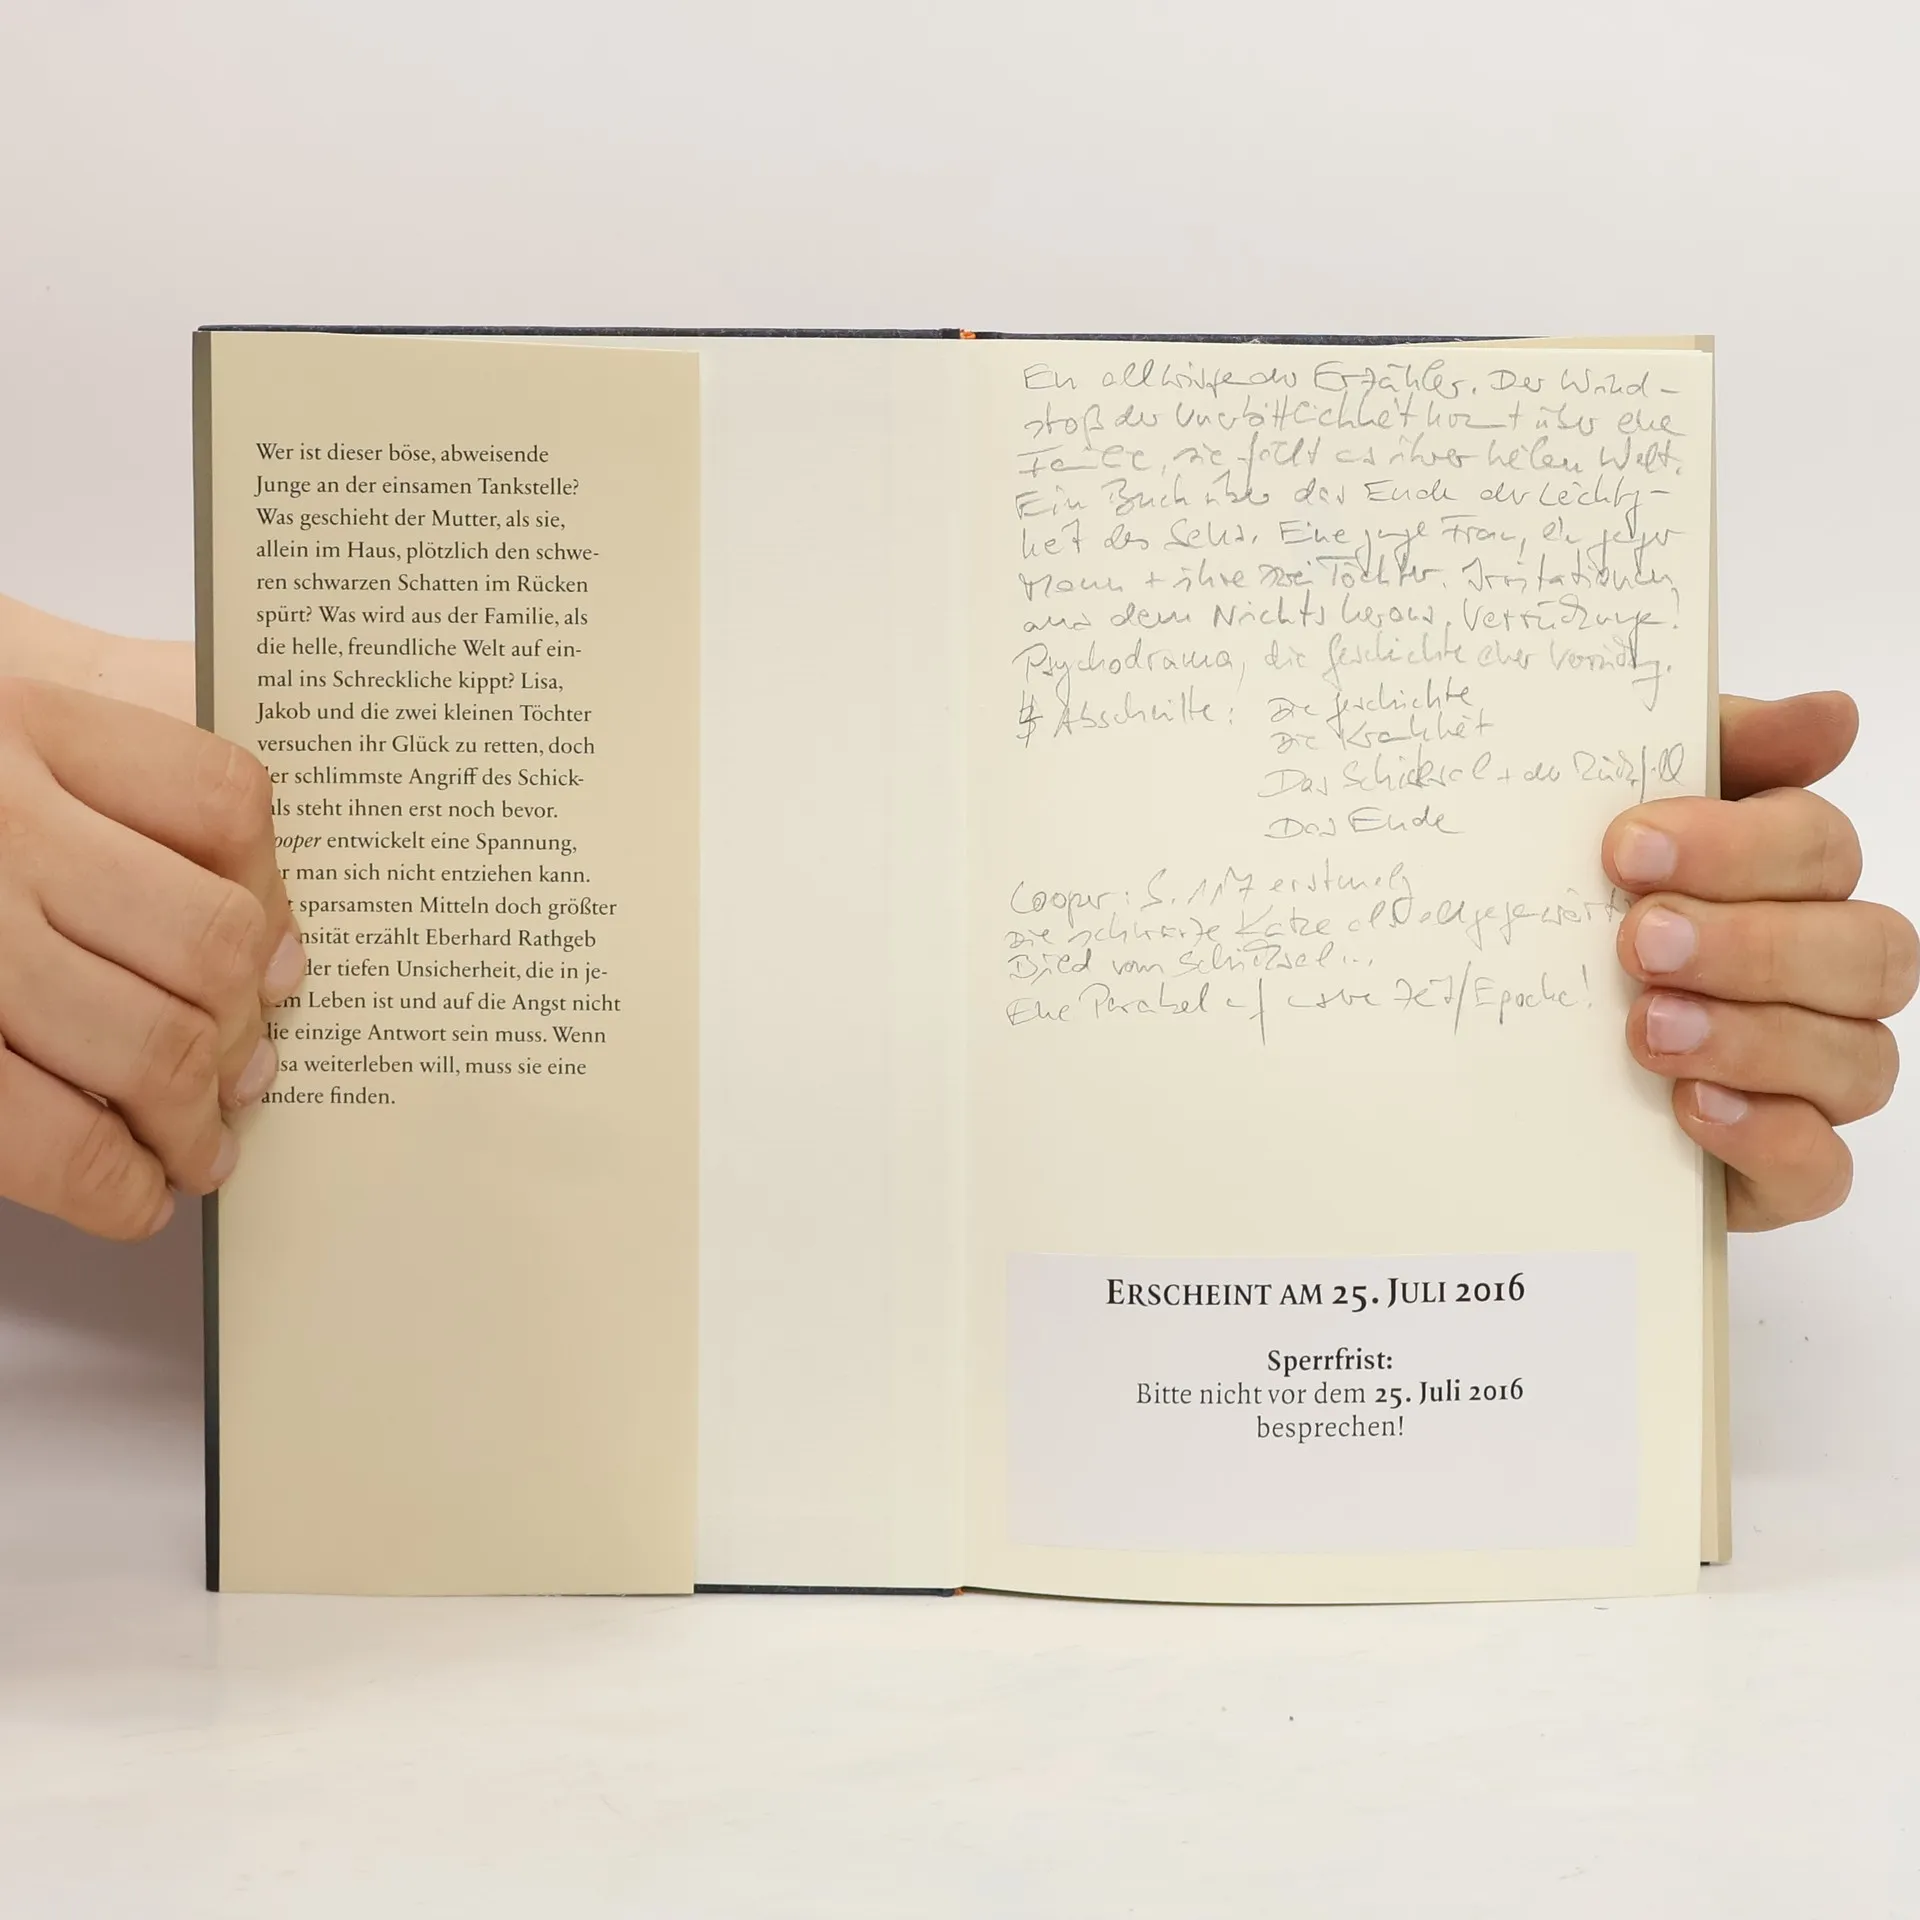 Wer ist dieser böse, abweisende
Junge an der einsamen Tankstelle?
Was geschieht der Mutter, als sie,
allein im Haus, plötzlich den schwe-
ren schwarzen Schatten im Rücken
spürt? Was wird aus der Familie, als
die helle, freundliche Welt auf ein-
mal ins Schreckliche kippt? Lisa,
Jakob und die zwei kleinen Töchter
versuchen ihr Glück zu retten, doch
er schlimmste Angriff des Schick-
als steht ihnen erst noch bevor.
ooper entwickelt eine Spannung,
r man sich nicht entziehen kann.
t sparsamsten Mitteln doch größter
nsität erzählt Eberhard Rathgeb
der tiefen Unsicherheit, die in je-
em Leben ist und auf die Angst nicht
die einzige Antwort sein muss. Wenn
isa weiterleben will, muss sie eine
andere finden.
Ein allwissender Erzähler. Der Wind-
stoß der Unerbittlichkeit kommt über eine
Familie, sie fällt aus ihrer heilen Welt.
Ein Buch über das Ende der Leichtig-
keit des Seins. Eine junge Frau, ein junger
Mann + ihre zwei Töchter. Irritationen,
aus dem Nichts heraus. Verrückung!
Psychodrama, die Geschichte einer
4 Abschnitte: Die Geschichte
Die Krankheit
Das Schicksal + der Rückfall
Das Ende
Cooper: S. 117 erstmalig
Die schwarze Katze als allgegenwärt
Bild vom Schicksal...
Eine Parabel auf unsre Zeit/Epoche!
ERSCHEINT AM 25. JULI 2016
Sperrfrist:
Bitte nicht vor dem 25. Juli 2016
besprechen!